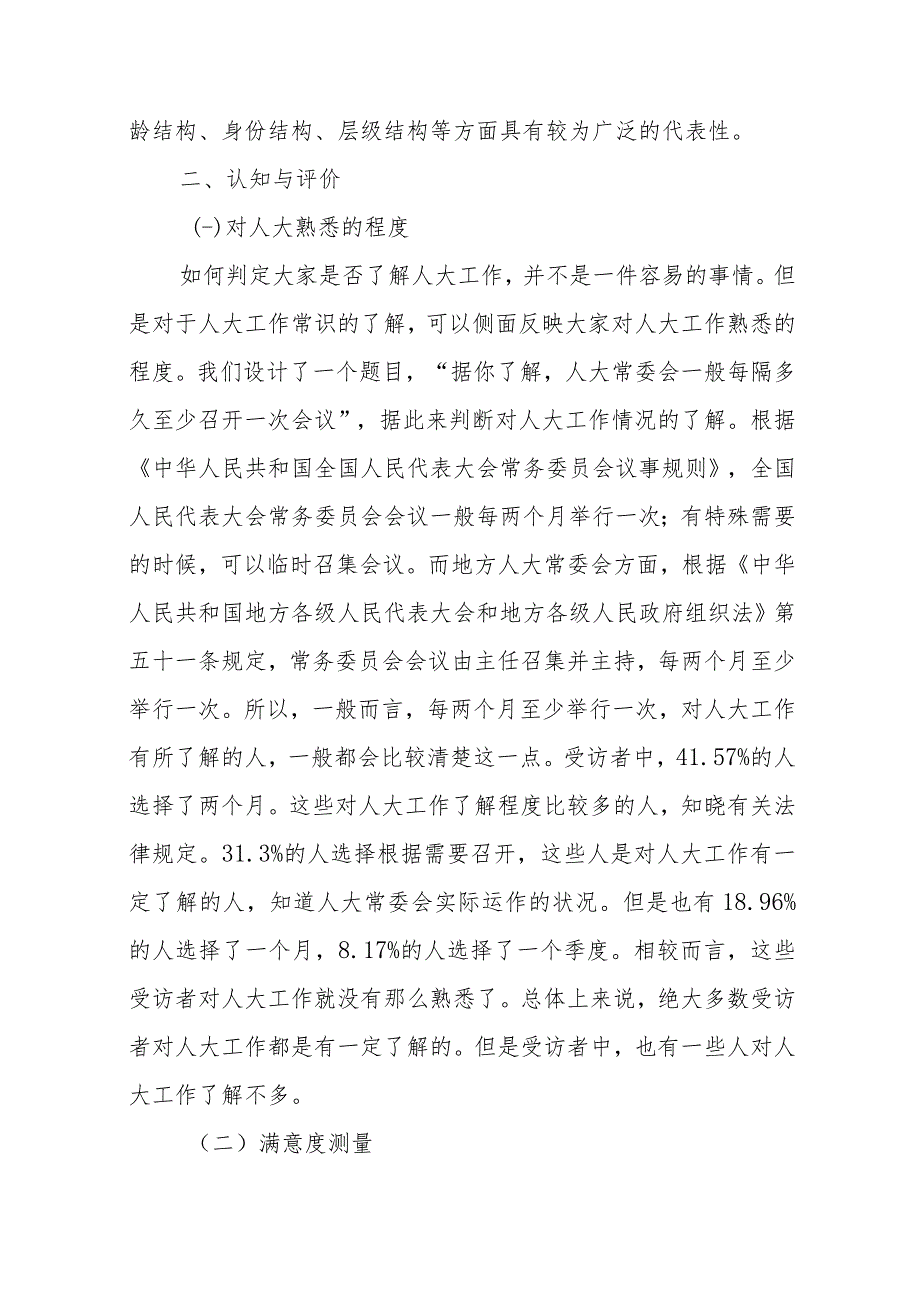 龄结构、身份结构、层级结构等方面具有较为广泛的代表性。
二、认知与评价
(-)对人大熟悉的程度
如何判定大家是否了解人大工作，并不是一件容易的事情。但
是对于人大工作常识的了解，可以侧面反映大家对人大工作熟悉的
程度。我们设计了一个题目，“据你了解，人大常委会一般每隔多
久至少召开一次会议”，据此来判断对人大工作情况的了解。根据
《中华人民共和国全国人民代表大会常务委员会议事规则》，全国
人民代表大会常务委员会会议一般每两个月举行一次；有特殊需要
的时候，可以临时召集会议。而地方人大常委会方面，根据《中华
人民共和国地方各级人民代表大会和地方各级人民政府组织法》第
五十一条规定，常务委员会会议由主任召集并主持，每两个月至少
举行一次。所以，一般而言，每两个月至少举行一次，对人大工作
有所了解的人，一般都会比较清楚这一点。受访者中，41.57%的人
选择了两个月。这些对人大工作了解程度比较多的人，知晓有关法
律规定。31.3%的人选择根据需要召开，这些人是对人大工作有一
定了解的人，知道人大常委会实际运作的状况。但是也有18.96%
的人选择了一个月，8.17%的人选择了一个季度。相较而言，这些
受访者对人大工作就没有那么熟悉了。总体上来说，绝大多数受访
者对人大工作都是有一定了解的。但是受访者中，也有一些人对人
大工作了解不多。
（二）满意度测量